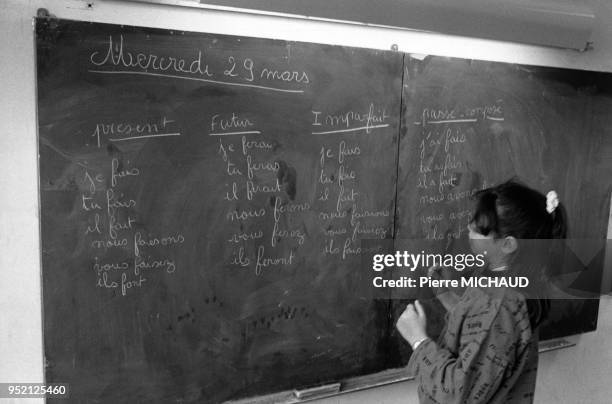 Mercredi 29 mars
présent
je fais
tu fais
il fait
nous faisons
vous faisiez
ils font
Futur
je ferai
tu feras
il ferait
nous ferons
vous ferez
ils feront
Imparfait
je fais
tu
il fait
nous faisions
vous faisiez
ils faisons
passé-composé
j'ai fais
tu
il a fait
nous avons
vous avez
ils ont
© Pierre MICHAUD